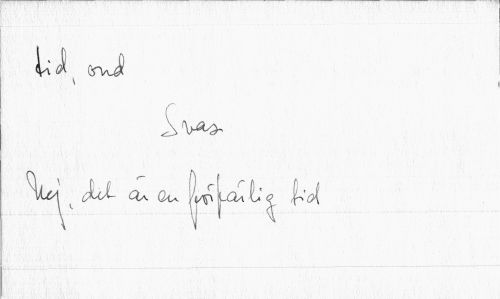 tid, ond
Svar
Nej, det är en förfärlig tid